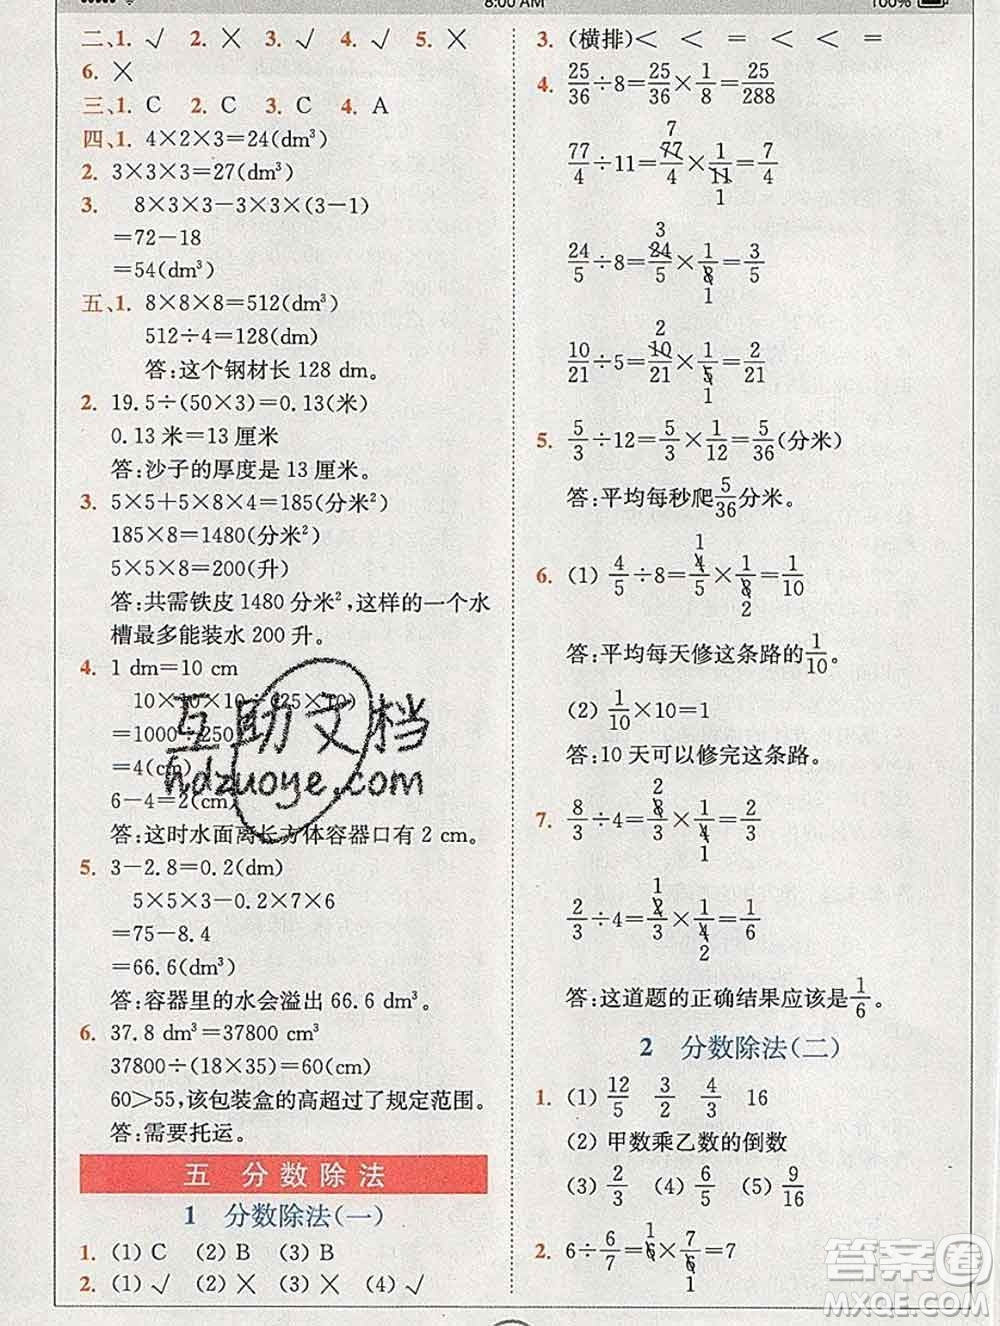 8:00 AM
100%
二、1. √ 2. × 3. √ 4. √ 5. ×
6. ×
三、1. C 2. C 3. C 4. A
四、1. 4×2×3=24(dm³)
2. 3×3×3=27(dm³)
3. 8×3×3-3×3×(3-1)
=72-18
=54(dm³)
五、1. 8×8×8=512(dm³)
512÷4=128(dm)
答:这个钢材长 128 dm。
2. 19.5÷(50×3)=0.13(米)
0.13 米=13 厘米
答:沙子的厚度是 13 厘米。
3. 5×5+5×8×4=185(分米²)
185×8=1480(分米²)
5×5×8=200(升)
答:共需铁皮 1480 分米²,这样的一个水
槽最多能装水 200 升。
4. 1 dm=10 cm
10×10×10÷(25×10)
=1000÷250
=4(cm)
6-4=2(cm)
答:这时水面离长方体容器口有 2 cm。
5. 3-2.8=0.2(dm)
5×5×3-0.2×7×6
=75-8.4
=66.6(dm³)
答:容器里的水会溢出 66.6 dm³。
6. 37.8 dm³=37800 cm³
37800÷(18×35)=60(cm)
60>55,该包装盒的高超过了规定范围。
答:需要托运。
五 分数除法
1 分数除法(一)
1. (1) C (2) B (3) B
2. (1) √ (2) × (3) × (4) √
3. (横排) < < = < < =
4. 25/36÷8=25/36×1/8=25/288
77/4÷11=77/4×1/11=7/4
24/5÷8=24/5×1/8=3/5
10/21÷5=10/21×1/5=2/21
5. 5/3÷12=5/3×1/12=5/36(分米)
答:平均每秒爬5/36分米。
6. (1) 4/5÷8=4/5×1/8=1/10
答:平均每天修这条路的1/10。
(2) 1/10×10=1
答:10 天可以修完这条路。
7. 8/3÷4=8/3×1/4=2/3
2/3÷4=2/3×1/4=1/6
答:这道题的正确结果应该是1/6。
2 分数除法(二)
1. (1) 12/5 3/2 4/3 16
(2) 甲数乘乙数的倒数
(3) 2/3 (4) 6/5 (5) 9/16
2. 6÷6/7=6×7/6=7
互助文档
hdzuoye.com
答案圈
MXQE.COM